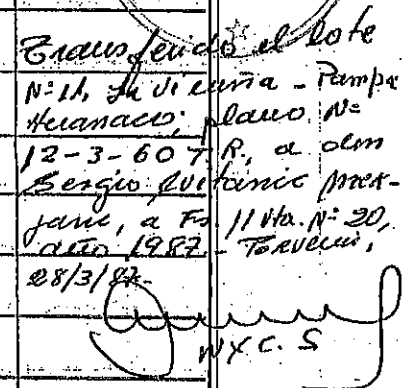 Transferido el lote
N° 11, La Vicuña - Pampa
Huanaco; plano N°
12-3-60 T.R, a don
Sergio Kvitanic
a Fs. 11 Vta. N° 20,
año 1987 - Porvenir,
28/3/87.-